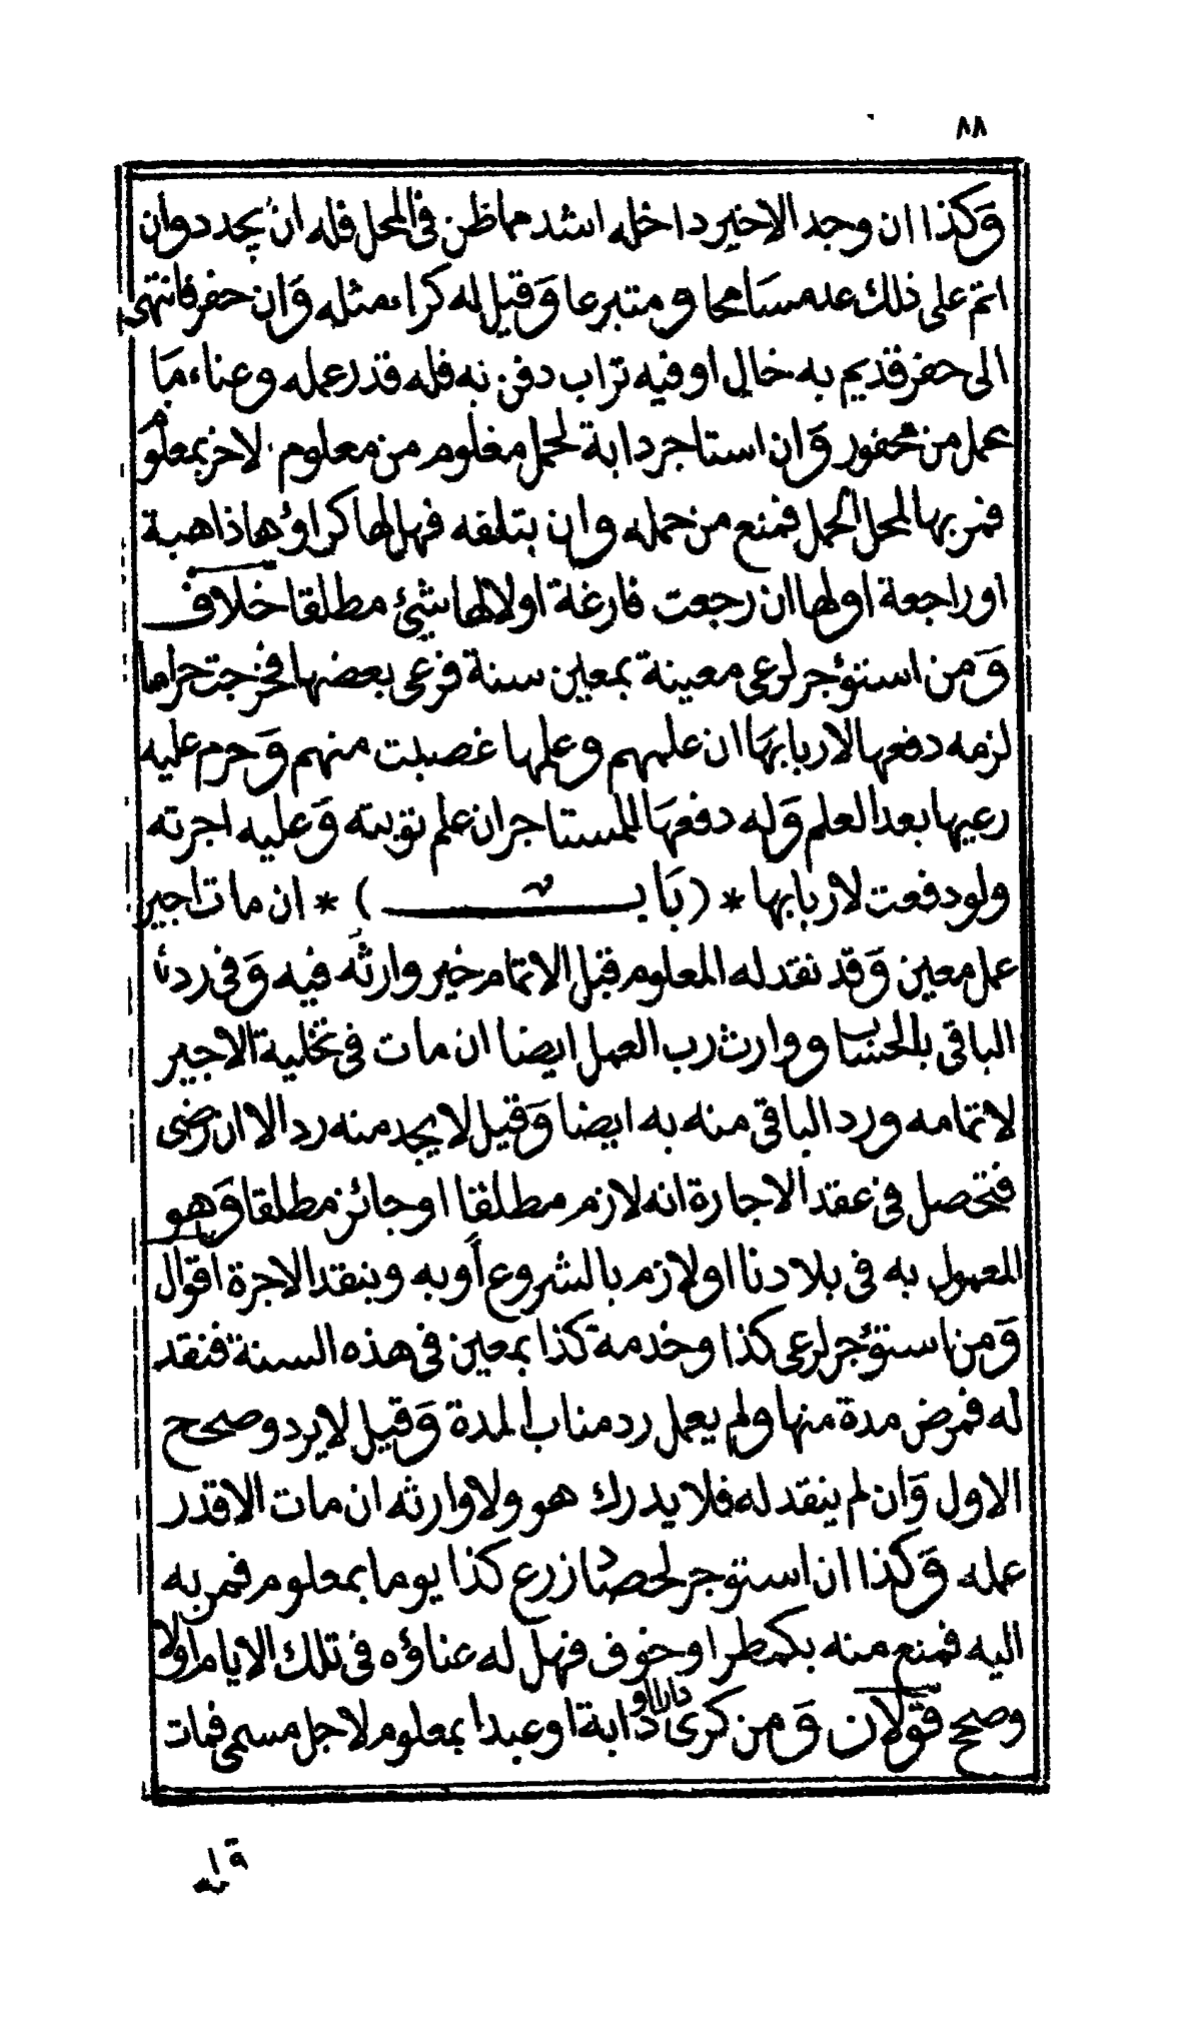 ٨٨
وَكذا ان وجد الاخير داخله اشد مما ظن فى المحل فله انْ يجدد وان
اتم على ذلك عد مسَامحا و متبرعا وَقيل له كراء مثله وَان حفر فانتهى
الى حفر قديم به خال او فيه تراب دفن به فله قدر عمله و عناء مَا
عمل من محفور وَان استاجر دابة لحمل معلوم من معلوم لاخر بمعلوم
فمر بها لمحل الحمل فمنع من حمله وان بتلفه فهل لها كراؤها ذاهبة
او راجعة او لها ان رجعت فارغة او لا لها شئ مطلقا خلاف
وَمن استؤجر لرعى معينة بمعين سنة فرعى بعضها فخرجت حراما
لزمه دفعها لاربابهَا ان علمهم وعلمها غصبت منهم وَحرم عليه
رعيها بعد العلم وَله دفعهَا للمستاجر ان علم توبته وَعليه اجرته
ولو دفعت لاربابها * (بَاب) * ان مات اجير
عمل معين وَقد نقد له المعلوم قبل الاتمام خير وارثه فيه وَفى رد
الباقى بالحسَاب و وارث رب العمل ايضا ان مات فى تخلية الاجير
لاتمامه ورد الباقى منه به ايضا وَقيل لا يجد منه ردا الا ان رضى
فتحصل فى عقد الاجارة انه لازم مطلقا او جائز مطلقا وَهو
المعمول به فى بلادنا او لازم بالشروع اَو به وبنقد الاجرة اقوال
وَمن استؤجر لرعى كذا وخدمة كذا بمعين فى هذه السنة فنقد
له فمرض مدة منها ولم يعمل رد مناب المدة وَقيل لا يرد وصحح
الاول وَان لم ينقد له فلا يدرك هو ولا وارثه ان مات الا قدر
عمله وَكذا ان استوجر لحصاد زرع كذا يوما بمعلوم فمر به
اليه فمنع منه بكمطر او خوف فهل له عناؤه فى تلك الايام اولا
وصحح قولان وَمن كرى دارا او دابة او عبدا بمعلوم لاجل مسمى فمات